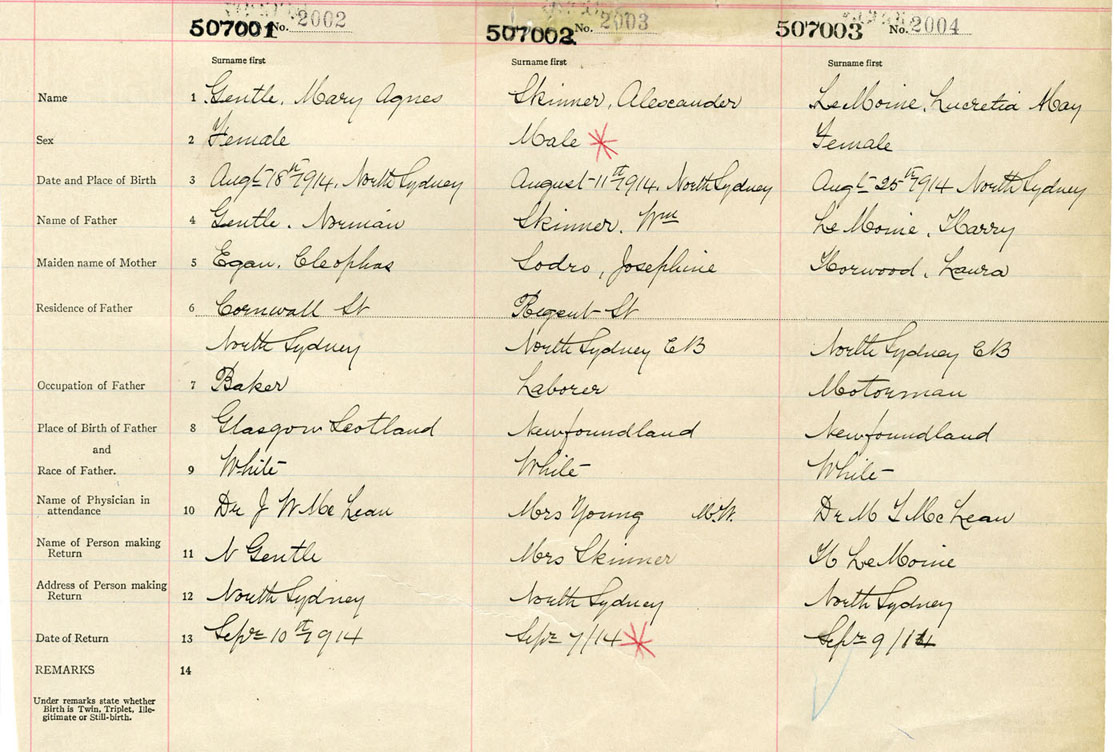 507001 No. 2002 507002 No. 2003 507003 No. 2004
Surname first Surname first Surname first
Name 1 Gentle, Mary Agnes Skinner, Alexcander LeMoine, Lucretia May
Sex 2 Female Male Female
Date and Place of Birth 3 Augt 18th 1914, North Sydney August 11th 1914, North Sydney Augt 25th 1914 North Sydney
Name of Father 4 Gentle, Norman Skinner, Wm LeMoine, Harry
Maiden name of Mother 5 Egan, Cleophas Sodro, Josephine Horwood, Laura
Residence of Father 6 Cornwall St Regent St
North Sydney North Sydney CB North Sydney CB
Occupation of Father 7 Baker Laborer Motorman
Place of Birth of Father 8 Glasgow Scotland Newfoundland Newfoundland
and
Race of Father. 9 White White White
Name of Physician in
attendance 10 Dr J W McLean Mrs Young M.W. Dr M McLean
Name of Person making
Return 11 N Gentle Mrs Skinner H LeMoine
Address of Person making
Return 12 North Sydney North Sydney North Sydney
Date of Return 13 Sepr 10th 1914 Sepr 7/14 Sepr 9/14
REMARKS 14
Under remarks state whether
Birth is Twin, Triplet, Ille-
gitimate or Still-birth.